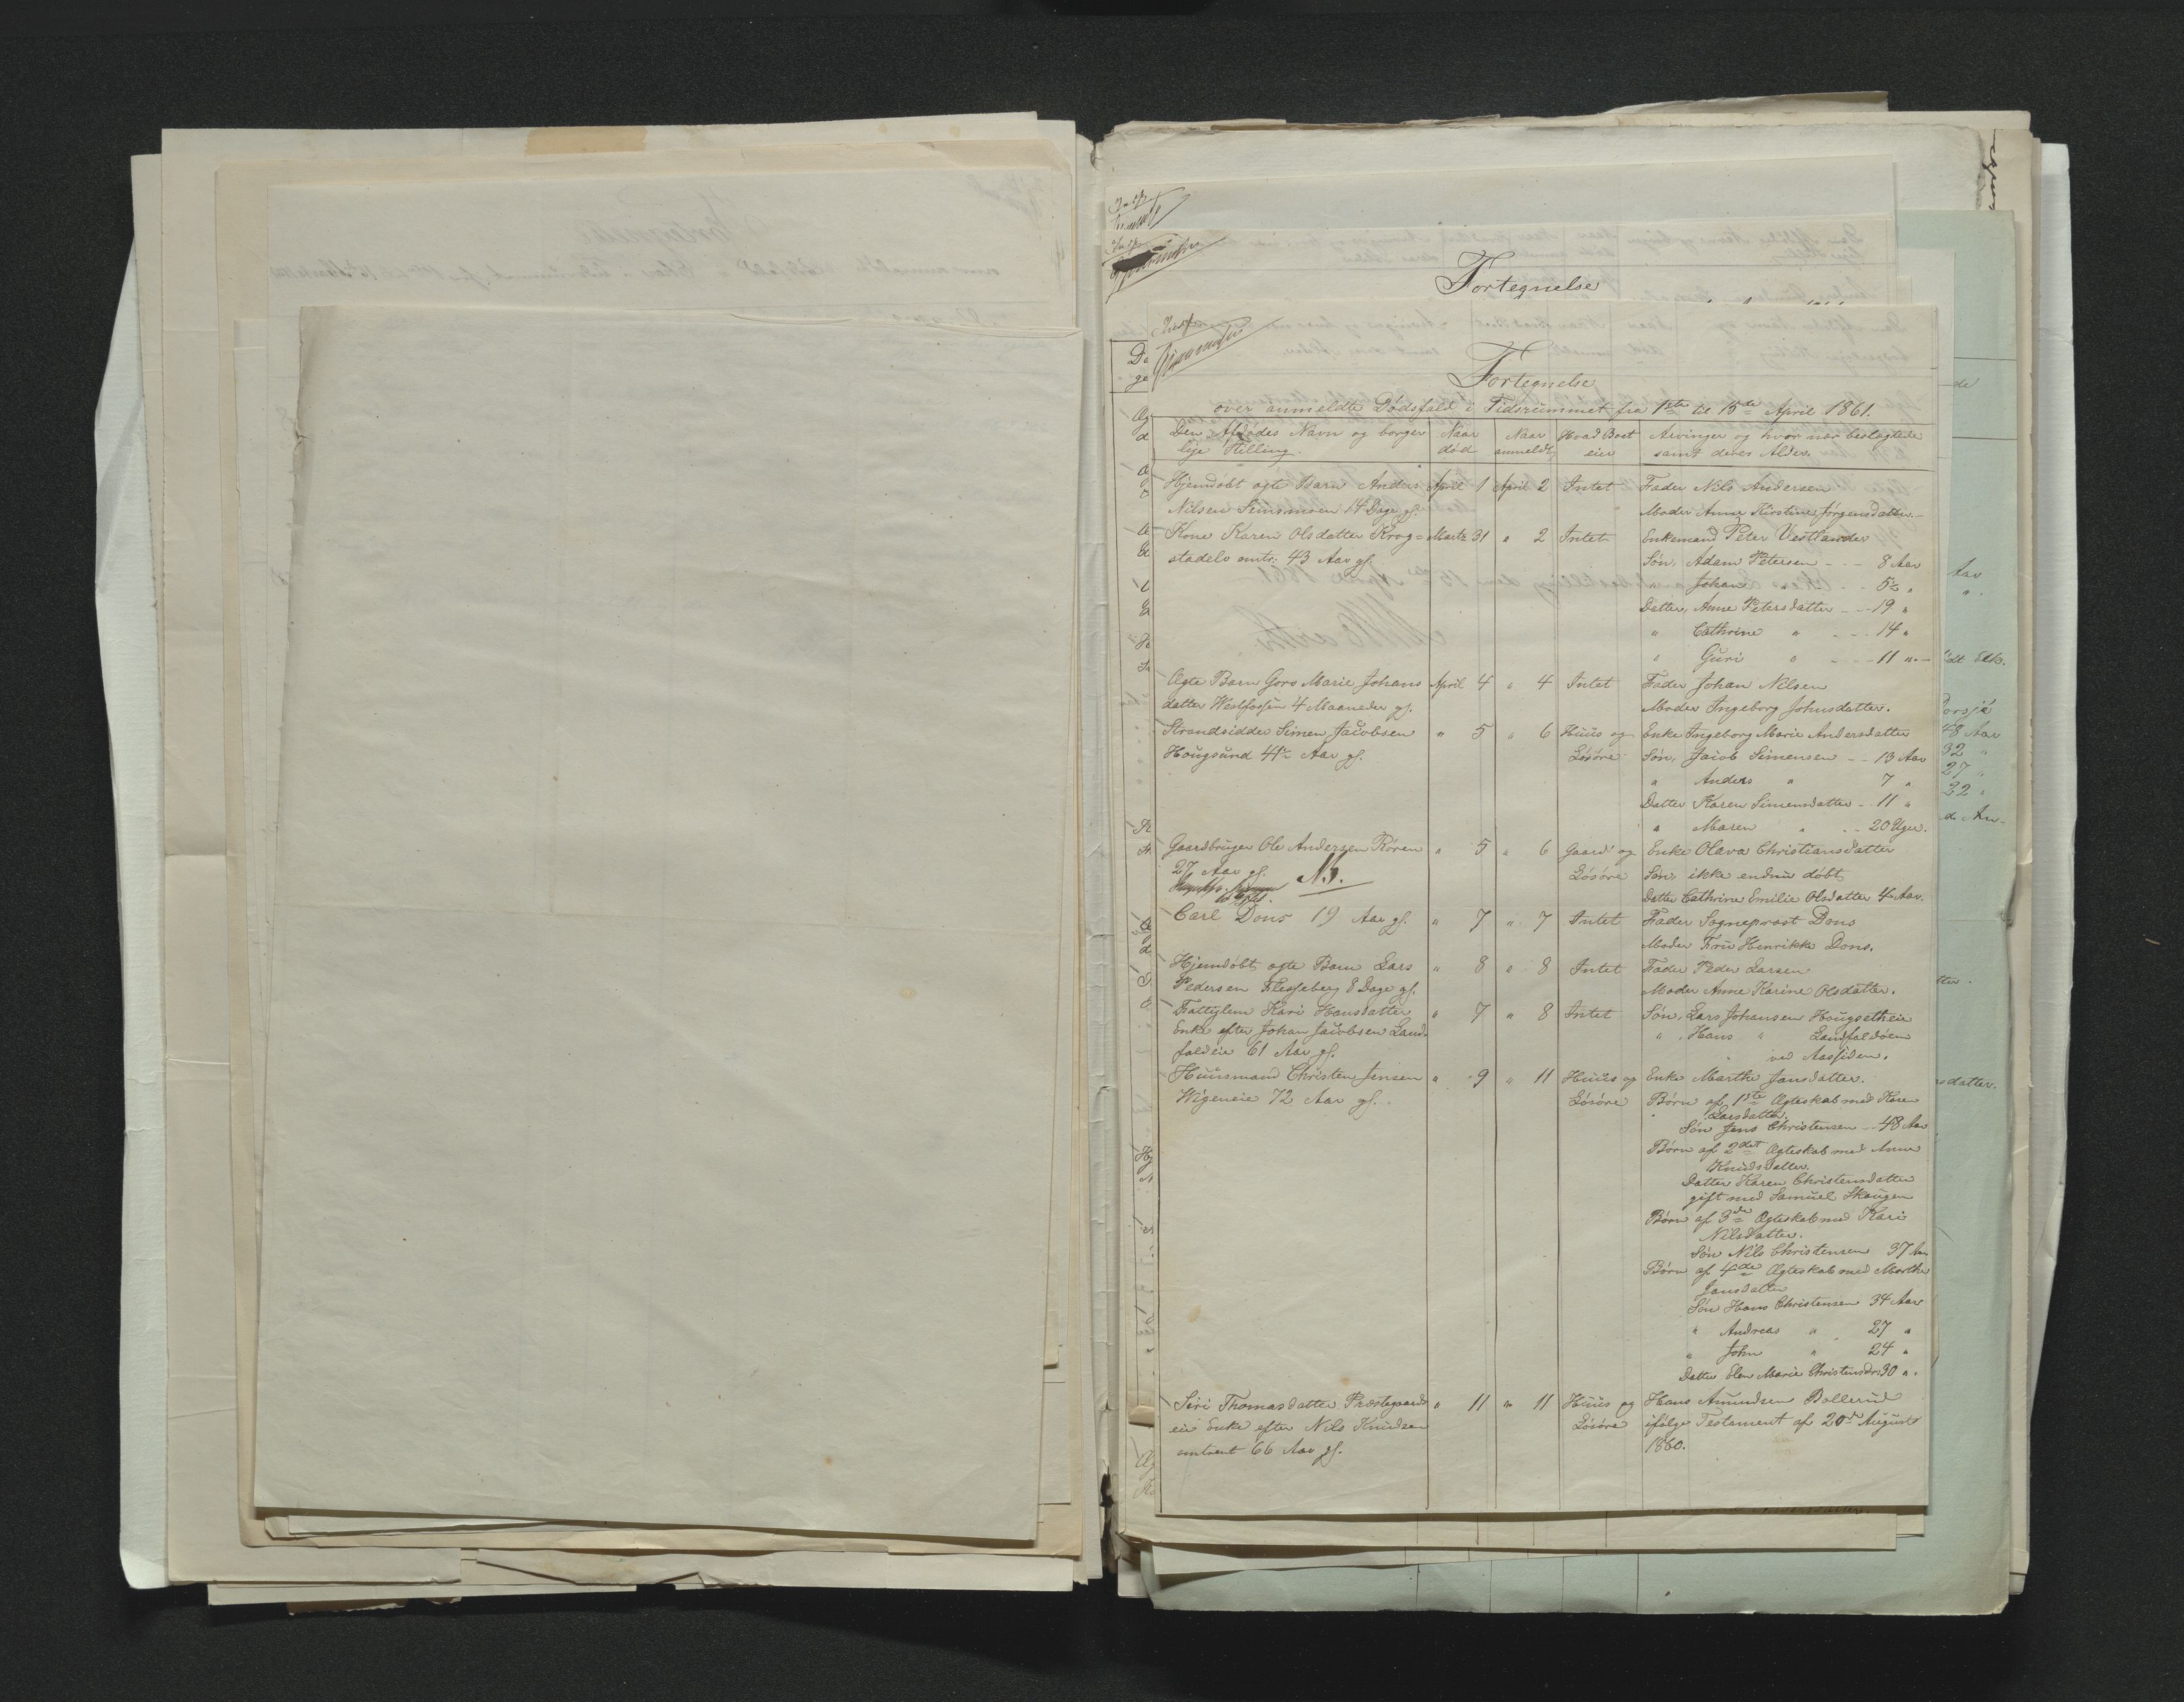 Fortegnelse
Fortegnelse
over anmeldte Dødsfald i Tidsrummet fra 1ste til 15de April 1861.
Den Afdødes Navn og borger
lige Stilling.
Naar
død
Naar
anmeldt
Hvad Boet
eier
Arvinger og hvor nær beslægtede
samt deres Alder.
Hjemdøbt ægte Barn Anders April 1 April 2 Intet Fader Nils Andersen
Nilsen Simonsen 14 Dage gl. Moder Anne Kirstine Jørgensdatter.
Kone Karen Olsdatter Krog= Marts 31 " 2 Intet Enkemand Peter Vestlander
stadelv omtr. 43 Aar gl. Søn, Adam Petersen - - 8 Aar
" Johan " - - 5½ "
Datter, Anne Petersdatter - - 19 "
" Cathrine " - - - 14 "
" Guri " - - - 11 "
Ægte Barn Goro Marie Johans April 4 " 4 Intet Fader Johan Nilsen
datter Westfossen 4 Maaneder gl. Moder Ingeborg Johnsdatter.
Strandsidder Simen Jacobsen " 5 " 6 Huus og Enke Ingeborg Marie Andersdatter
Hougsund 41½ Aar gl. Løsøre Søn, Jacob Simensen - - 13 Aar
" Anders " 7 "
Datter Karen Simensdatter - 11 "
" Maren " - - 20 Uger.
Gaardbruger Ole Andersen Røren " 5 " 6 Gaard og Enke Olava Christiansdatter
27 Aar gl. N.B. Løsøre Søn, ikke endnu døbt
Datter Cathrine Emilie Olsdatter 4 Aar.
Carl Dons 19 Aar gl. " 7 " 7 Intet Fader Sognepræst Dons
Moder Fru Henrikke Dons.
Hjemdøbt ægte Barn Lars " 8 " 8 Intet Fader Peder Larsen
Pedersen Flesseberg 8 Dage gl. Moder Anne Karine Olsdatter.
Fattiglem Kari Hansdatter " 7 " 8 Intet Søn, Lars Johansen Hougsetheie
Enke efter Johan Jacobsen Land= " Hans " Landfaldøen
faldeie 61 Aar gl. ved Aassiden.
Huusmand Christen Jensen " 9 " 11 Huus og Enke Marthe Jansdatter.
Wigeneie 72 Aar gl. Løsøre Børn af 1ste Ægteskab med Karen
Larsdatter.
Søn Jens Christensen - 48 Aar
Børn af 2det Ægteskab med Anne
Knudsdatter.
Datter Karen Christensdatter
gift med Samuel Skougen
Børn af 3de Ægteskab med Kari
Nilsdatter.
Søn Nils Christensen 37 Aar
Børn af 4de Ægteskab med Marthe
Jansdatter
Søn Hans Christensen 34 Aar
" Andreas " 27 "
" John " 24 "
Datter Elen Marie Christensdr. 30 ".
Siri Thomasdatter Præstegaards " 11 " 11 Huus og Hans Amundsen Bollerud
eie Enke efter Nils Knudsen Løsøre ifølge Testament af 20de August
omtrent 66 Aar gl. 1860.